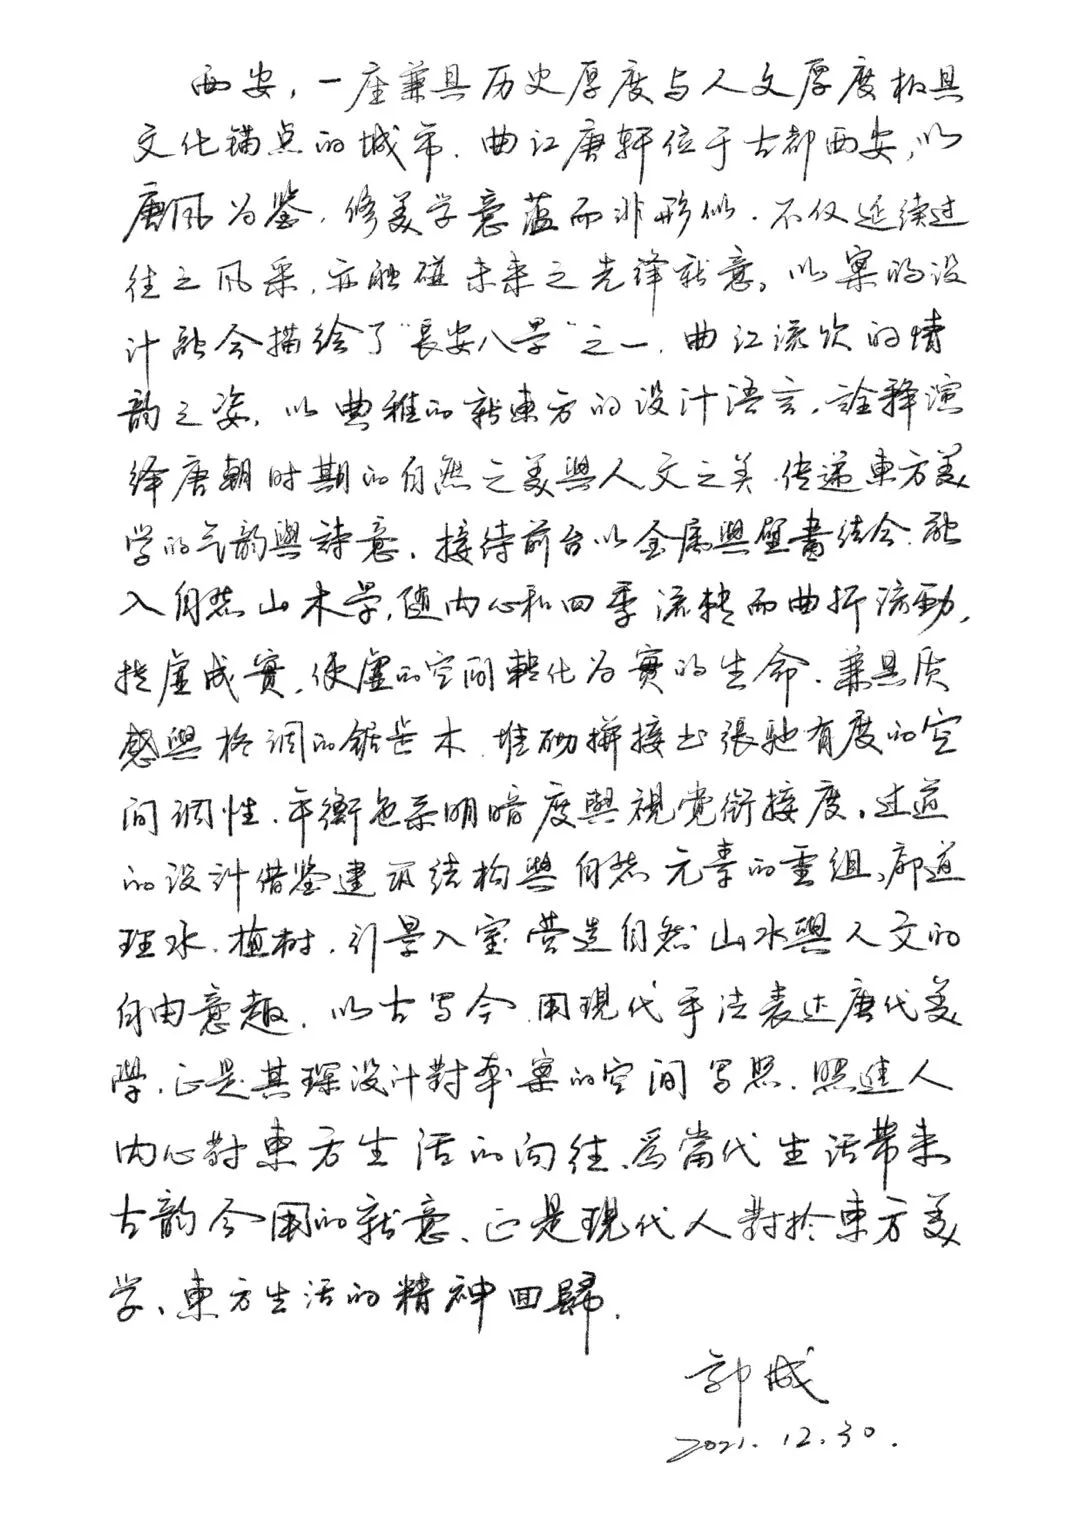 西安，一座兼具历史厚度与人文厚度极具
文化锚点的城市．曲江唐轩位于古都西安，以
唐风为鉴，修美学意蕴而非形似．不仅延续过
往之风采，亦触碰未来之先锋新意。以案的设
计融会描绘了“長安八景”之一．曲江流饮的情
韵之姿．以典雅的新東方的设计语言，詮释演
绎唐朝时期的自然之美與人文之美．传递東方美
学的气韵與詩意．接待前台以金属與壁畫结合．融
入自然山木景，随内心和四季流轉而曲折流動，
挖虚成實，使虚的空间轉化为實的生命．兼具质
感與格调的锯齿木．堆砌拼接出張馳有度的空
间调性．平衡色系明暗度與視觉衔接度。过道
的设计借鉴建筑结构與自然元素的重组，廊道
理水．植树，引景入室 营造自然山水與人文的
自由意趣．以古写今．用現代手法表达唐代美
學．正是其琛设计對本案的空间写照．照進人
内心對東方生活的向往．為當代生活带来
古韵今用的新意、正是現代人對於東方美
学、東方生活的精神回歸．
郭成
2021.12.30.